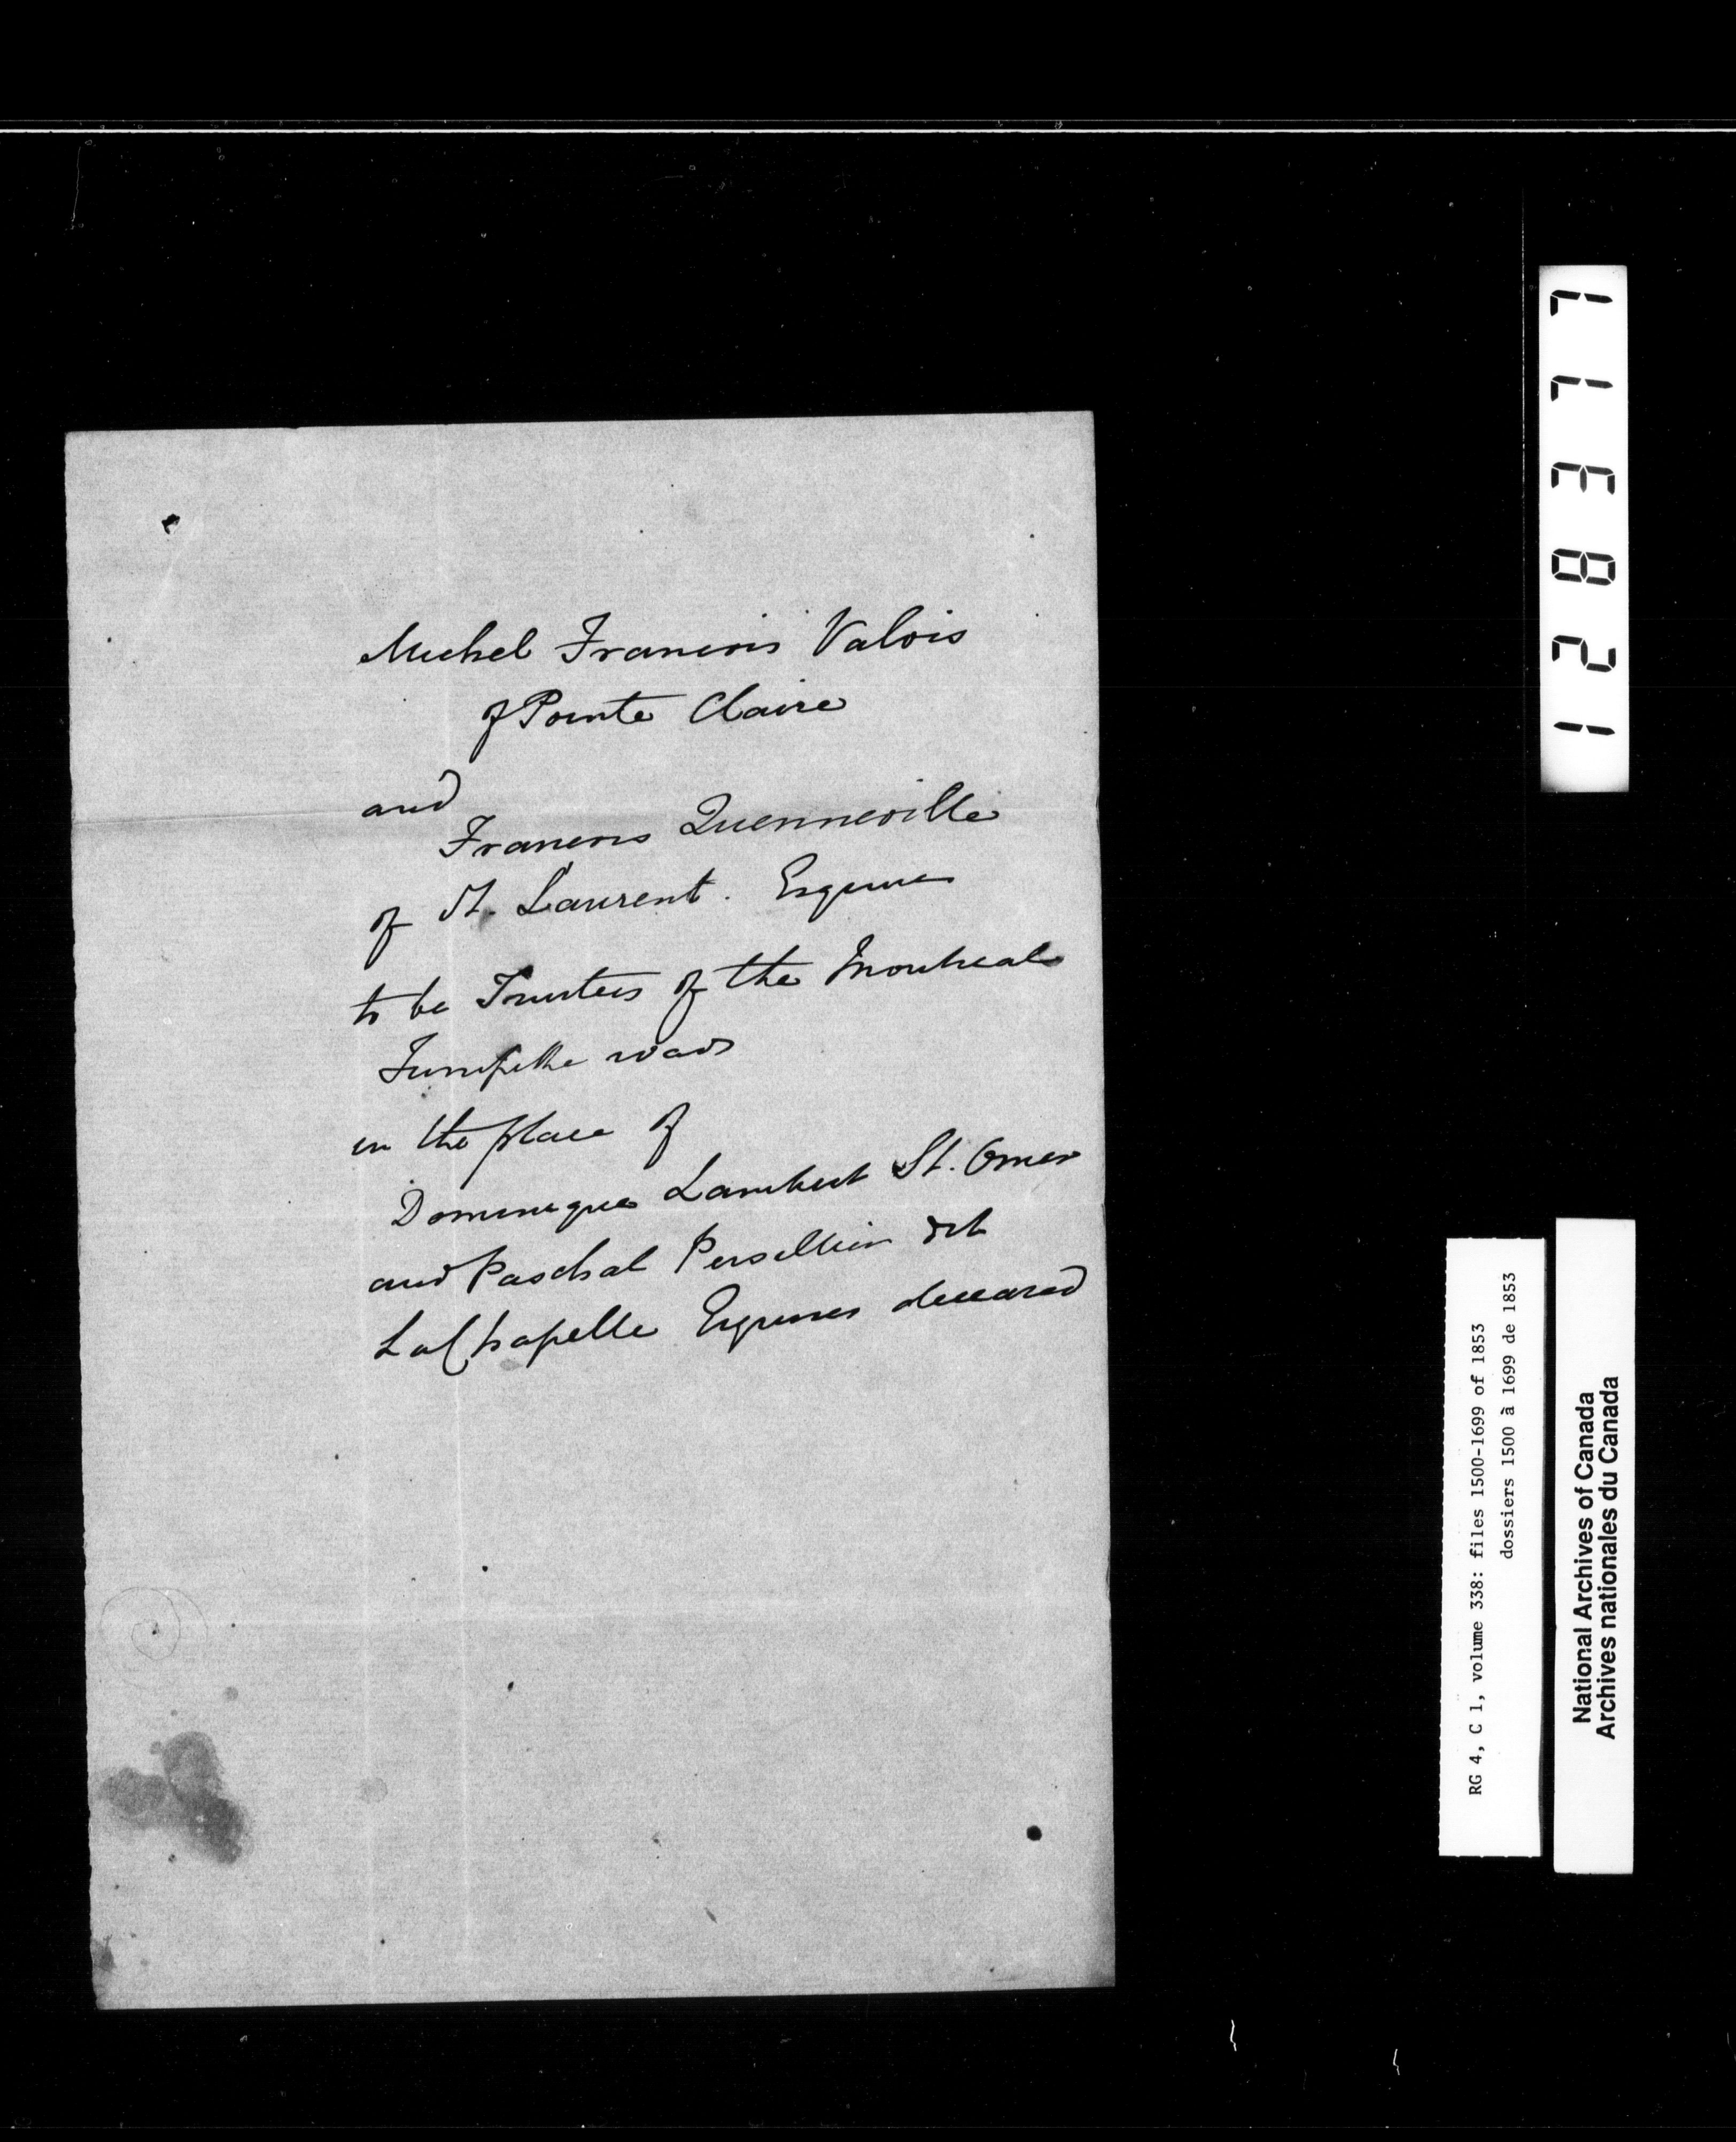 Michel Francois Valois
of Pointe Claire
and
Francois Quenneville
of St. Laurent. Esquires
to be Trustees of the Montreal
Turnpike roads
in the place of
Dominique Lambert St. Omer
and Paschal Persillier dit
LaChapelle Esquires deceased
128377
RG 4, C 1, volume 338: files 1500-1699 of 1853
dossiers 1500 à 1699 de 1853
National Archives of Canada
Archives nationales du Canada